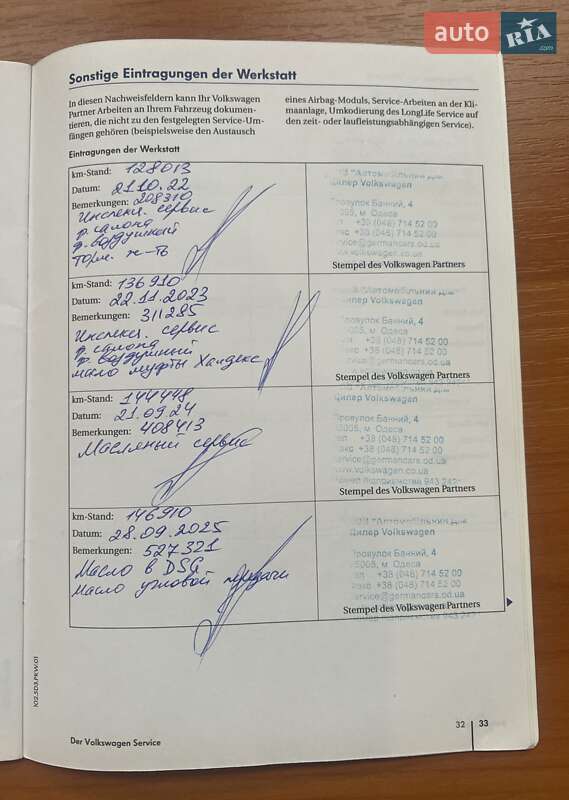 auto RIA.com
Sonstige Eintragungen der Werkstatt
In diesen Nachweisfeldern kann Ihr Volkswagen
Partner Arbeiten an Ihrem Fahrzeug dokumen-
tieren, die nicht zu den festgelegten Service-Um-
fängen gehören (beispielsweise den Austausch
eines Airbag-Moduls, Service-Arbeiten an der Kli-
maanlage, Umkodierung des LongLife Service auf
den zeit- oder laufleistungsabhängigen Service).
Eintragungen der Werkstatt
km-Stand: 128013
Datum: 21.10.22
Bemerkungen: 208310
Инспекц. сервис
ф. салона
ф. воздушный
торм. ж-ть
"Автомобільний Дім
Дилер Volkswagen
Провулок Банний, 4
м. Одеса
+38 (048) 714 52 00
+38 (048) 714 52 00
service@germancars.od.ua
www.volkswagen.co.ua
Stempel des Volkswagen Partners
km-Stand: 136910
Datum: 22.11.2023
Bemerkungen: 311285
Инспекц. сервис
ф. салона
ф. воздушный
масло муфты Халдекс
"Автомобільний Дім
Дилер Volkswagen
Провулок Банний, 4
65005, м. Одеса
+38 (048) 714 52 00
факс +38 (048) 714 52 00
service@germancars.od.ua
Stempel des Volkswagen Partners
km-Stand: 144448
Datum: 21.09.24
Bemerkungen: 408413
Масляный сервис
"Автомобільний Дім
Дилер Volkswagen
Провулок Банний, 4
65005, м. Одеса
тел +38 (048) 714 52 00
факс +38 (048) 714 52 00
service@germancars.od.ua
www.volkswagen.co.ua
Stempel des Volkswagen Partners
km-Stand: 146910
Datum: 28.09.2025
Bemerkungen: 527321
Масло в DSG
Масло угловой передачи
"Автомобільний Дім
Дилер Volkswagen
Провулок Банний, 4
65005, м. Одеса
тел +38 (048) 714 52 00
факс +38 (048) 714 52 00
service@germancars.od.ua
Stempel des Volkswagen Partners
102.5D3.PKW.01
Der Volkswagen Service
32 33